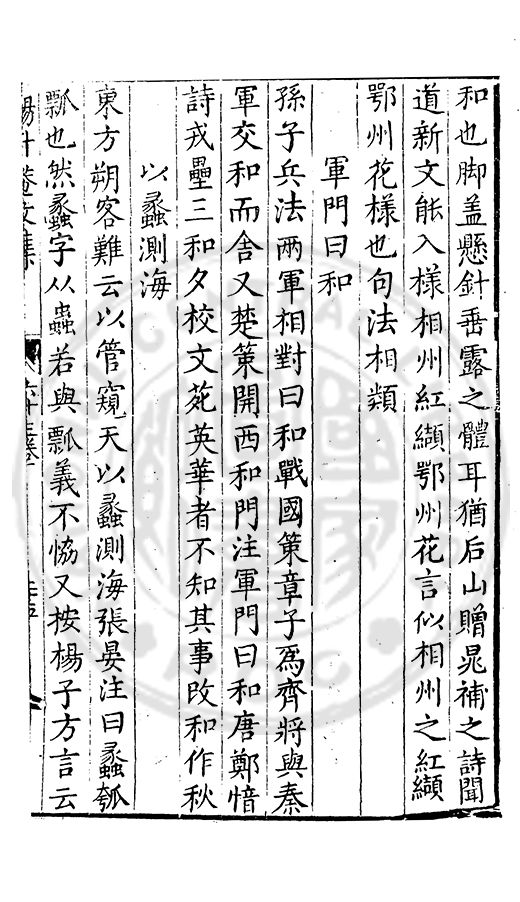 和也脚盖懸針垂露之體耳猶后山贈晁補之詩聞
道新文能入樣相州紅纈鄂州花言似相州之紅纈
鄂州花樣也句法相類
軍門曰和
孫子兵法兩軍相對曰和戰國策章子為齊將與秦
軍交和而舍又楚策開西和門注軍門曰和唐鄭愔
詩戎壘三和夕校文苑英華者不知其事改和作秋
以蠡測海
東方朔客難云以管窺天以蠡測海張晏注曰蠡瓠
瓢也然蠡字从蟲若與瓢義不恊又按楊子方言云
楊升菴文集